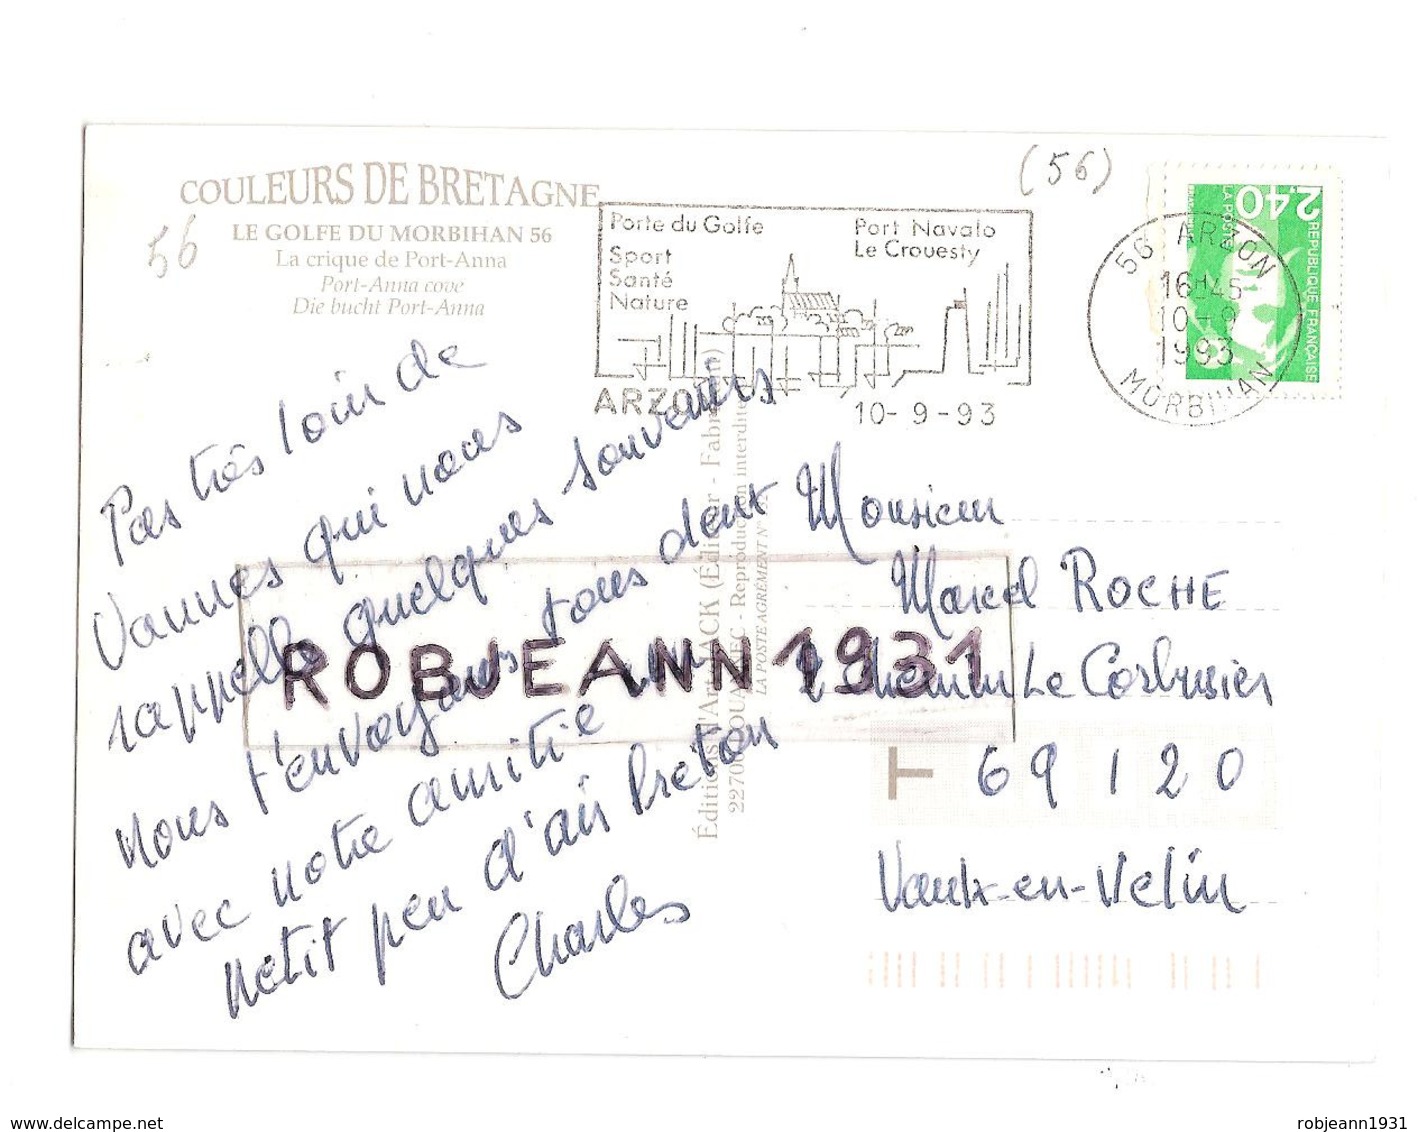 COULEURS DE BRETAGNE
LE GOLFE DU MORBIHAN 56
La crique de Port-Anna
Port-Anna cove
Die bucht Port-Anna
56
(56)
Porte du Golfe
Sport
Santé
Nature
Port Navalo
Le Crouesty
ARZON
10-9-93
56 ARZON
16H45
10-9
1993
MORBIHAN
2,40
LA POSTE
REPUBLIQUE FRANÇAISE
Pas très loin de
Vannes qui nous
rappelle quelques souvenirs
nous t'envoyons tous deux
avec notre amitié un
petit peu d'air breton
Charles
Éditions d'Art JACK (Éditeur - Fabricant)
22700 LOUANNEC - Reproduction interdite
LA POSTE AGRÉMENT N°
Monsieur
Marcel ROCHE
2 Chemin Le Corbusier
T 69120
Vaulx-en-Velin
ROBJEANN1931
www.delcampe.net
robjeann1931